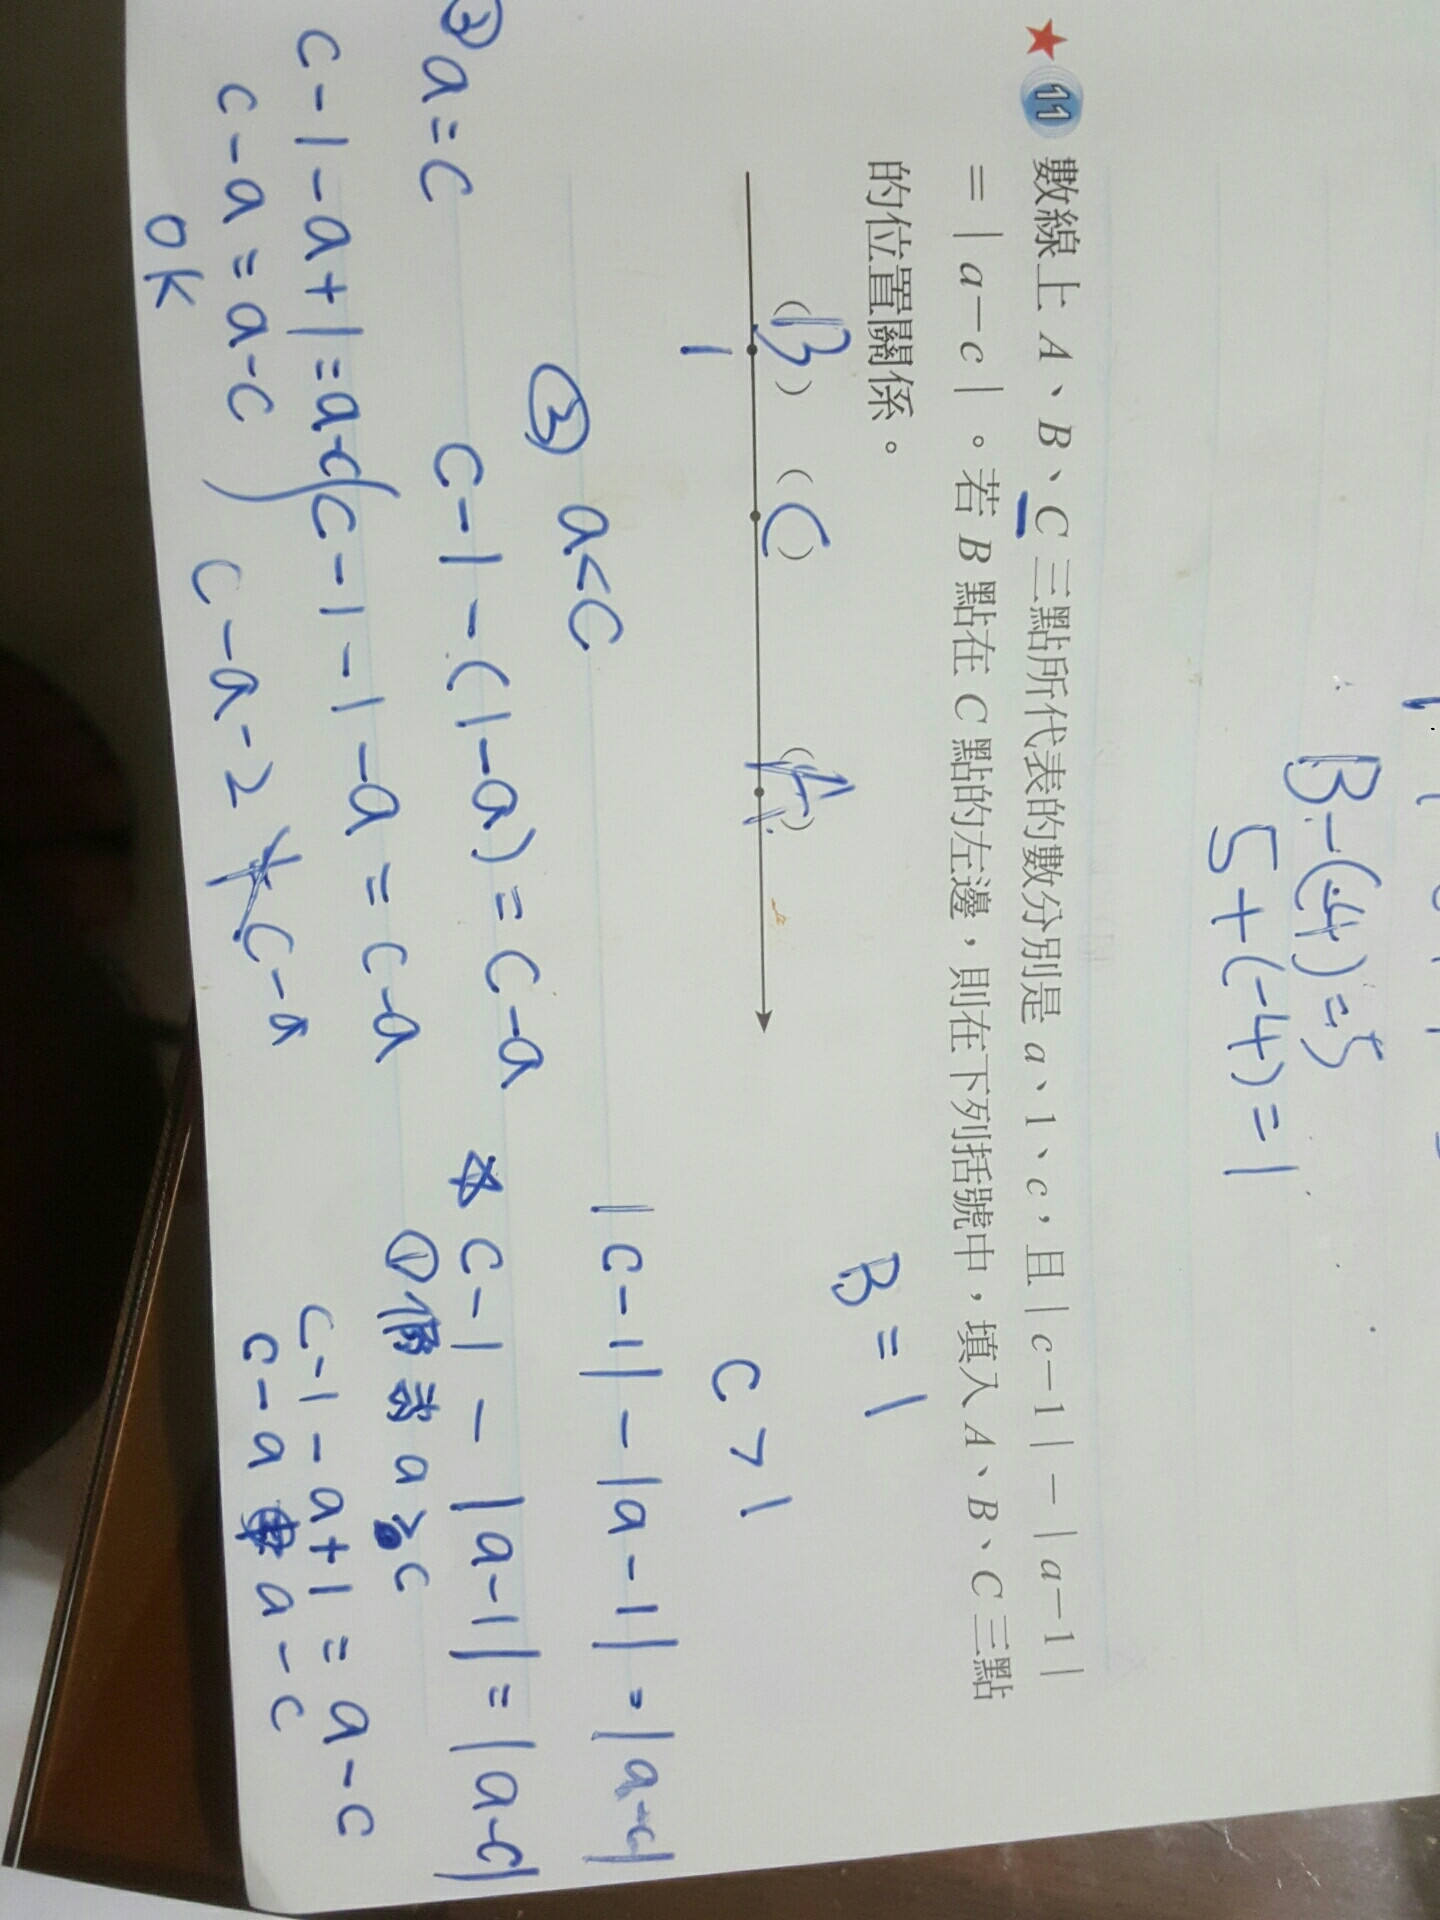 B-(-4)=5
5+(-4)=1
★ 11 數線上 A、B、C 三點所代表的數分別是 a、1、c，且 | c－1 | － | a－1 |
＝ | a－c | 。若 B 點在 C 點的左邊，則在下列括號中，填入 A、B、C 三點
的位置關係。
B = 1
(B) (C) (A)
1
C > 1
|c-1|-|a-1|=|a-c|
② a<c
c-1-|a-1|=|a-c|
③ a=c
c-1-(1-a)=c-a
① a≥c
c-1-a+1=a-c
c-1-1-a=c-a
c-1-a+1=a-c
c-a=a-c
c-a-2≠c-a
c-a a-c
OK